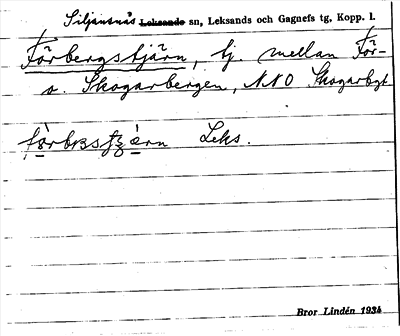 Siljansnäs Leksands sn, Leksands och Gagnefs tg, Kopp. l.
Förbergstjärn, tj. mellan För-
o. Skogarbergen, NNO Skogarbyt
fò̱rbɪ̯ssʈʂæ̀rn Leks.
Bror Lindén 1934